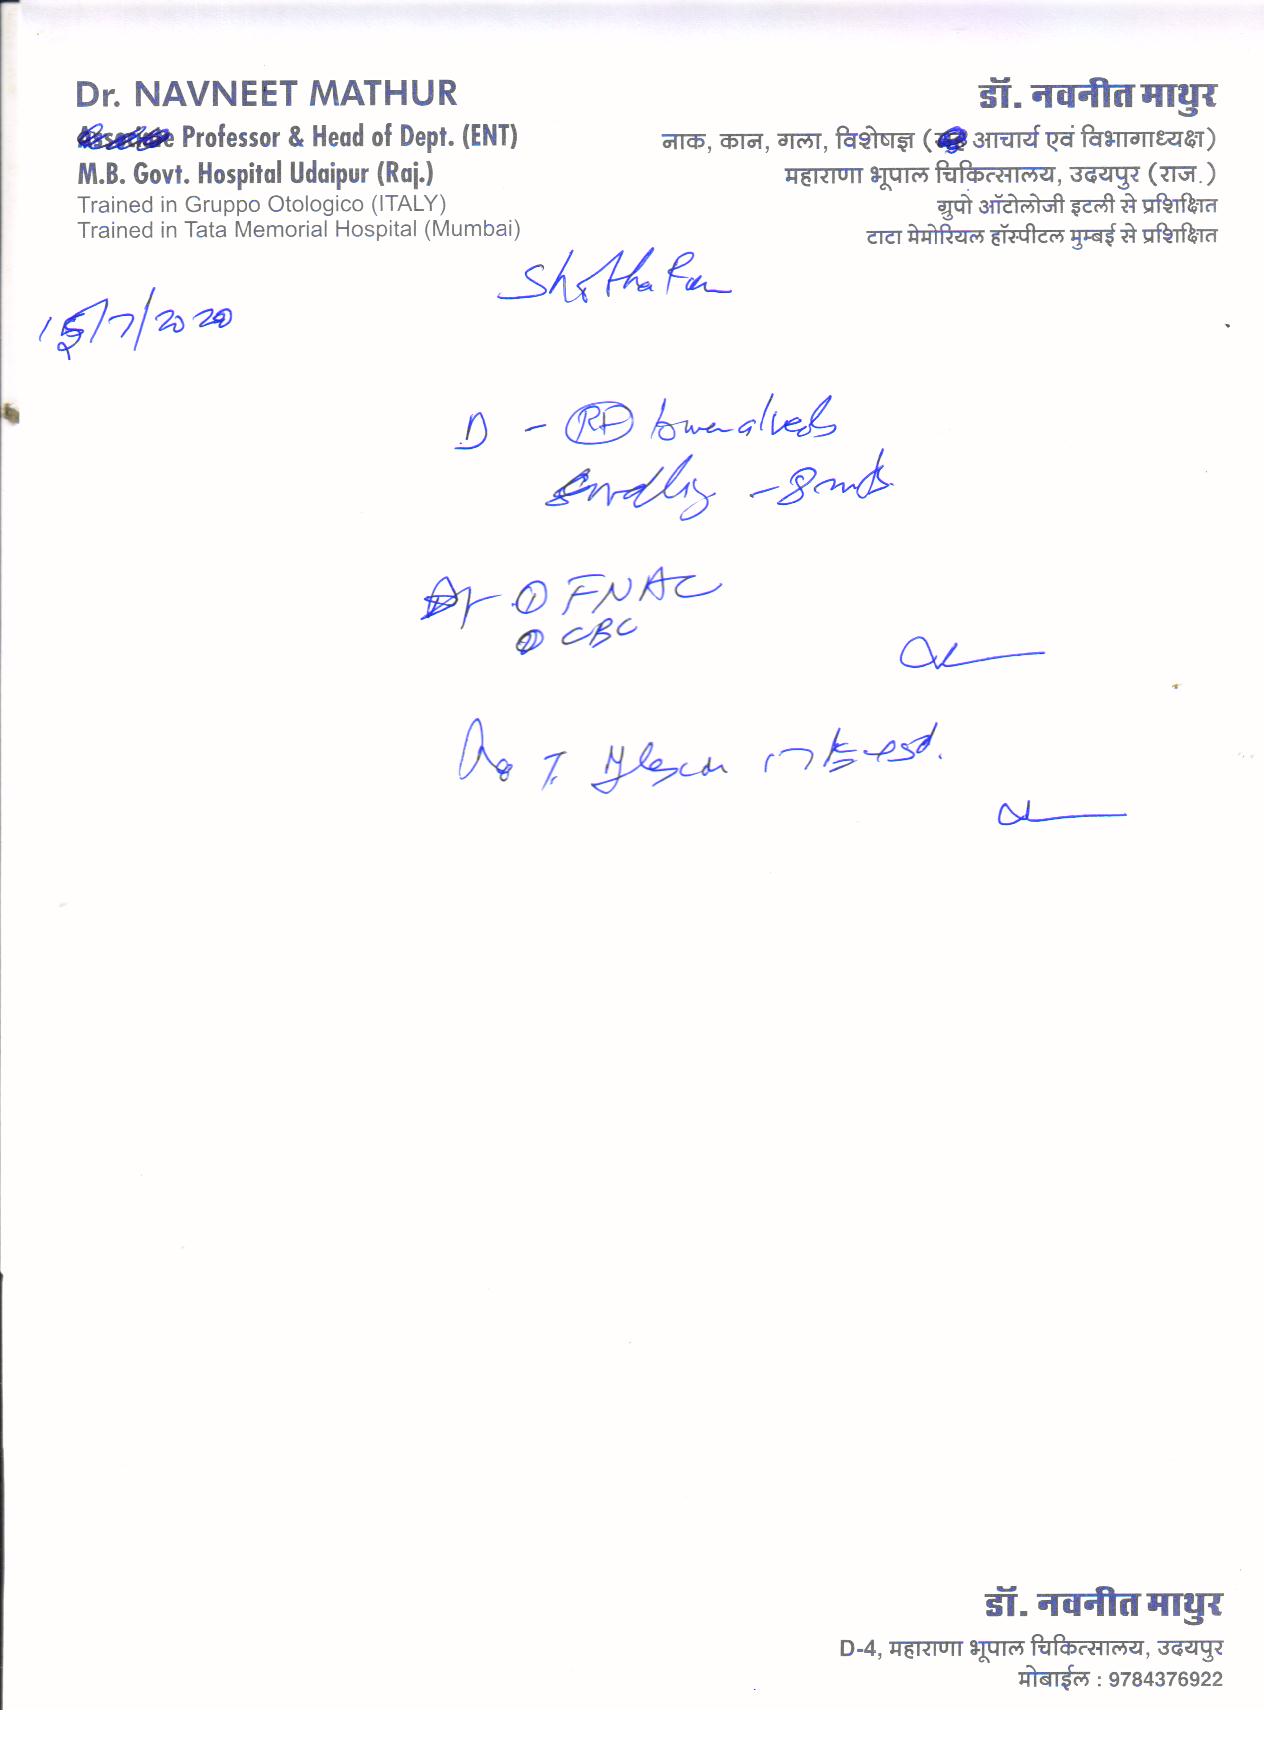 Dr. NAVNEET MATHUR
Professor & Head of Dept. (ENT)
M.B. Govt. Hospital Udaipur (Raj.)
Trained in Gruppo Otologico (ITALY)
Trained in Tata Memorial Hospital (Mumbai)
डॉ. नवनीत माथुर
नाक, कान, गला, विशेषज्ञ ( आचार्य एवं विभागाध्यक्ष)
महाराणा भूपाल चिकित्सालय, उदयपुर (राज.)
ग्रुपो ऑटोलोजी इटली से प्रशिक्षित
टाटा मेमोरियल हॉस्पीटल मुम्बई से प्रशिक्षित
15/7/2020
D -
- 8
① FNAC
② CBC
T.
डॉ. नवनीत माथुर
D-4, महाराणा भूपाल चिकित्सालय, उदयपुर
मोबाईल : 9784376922